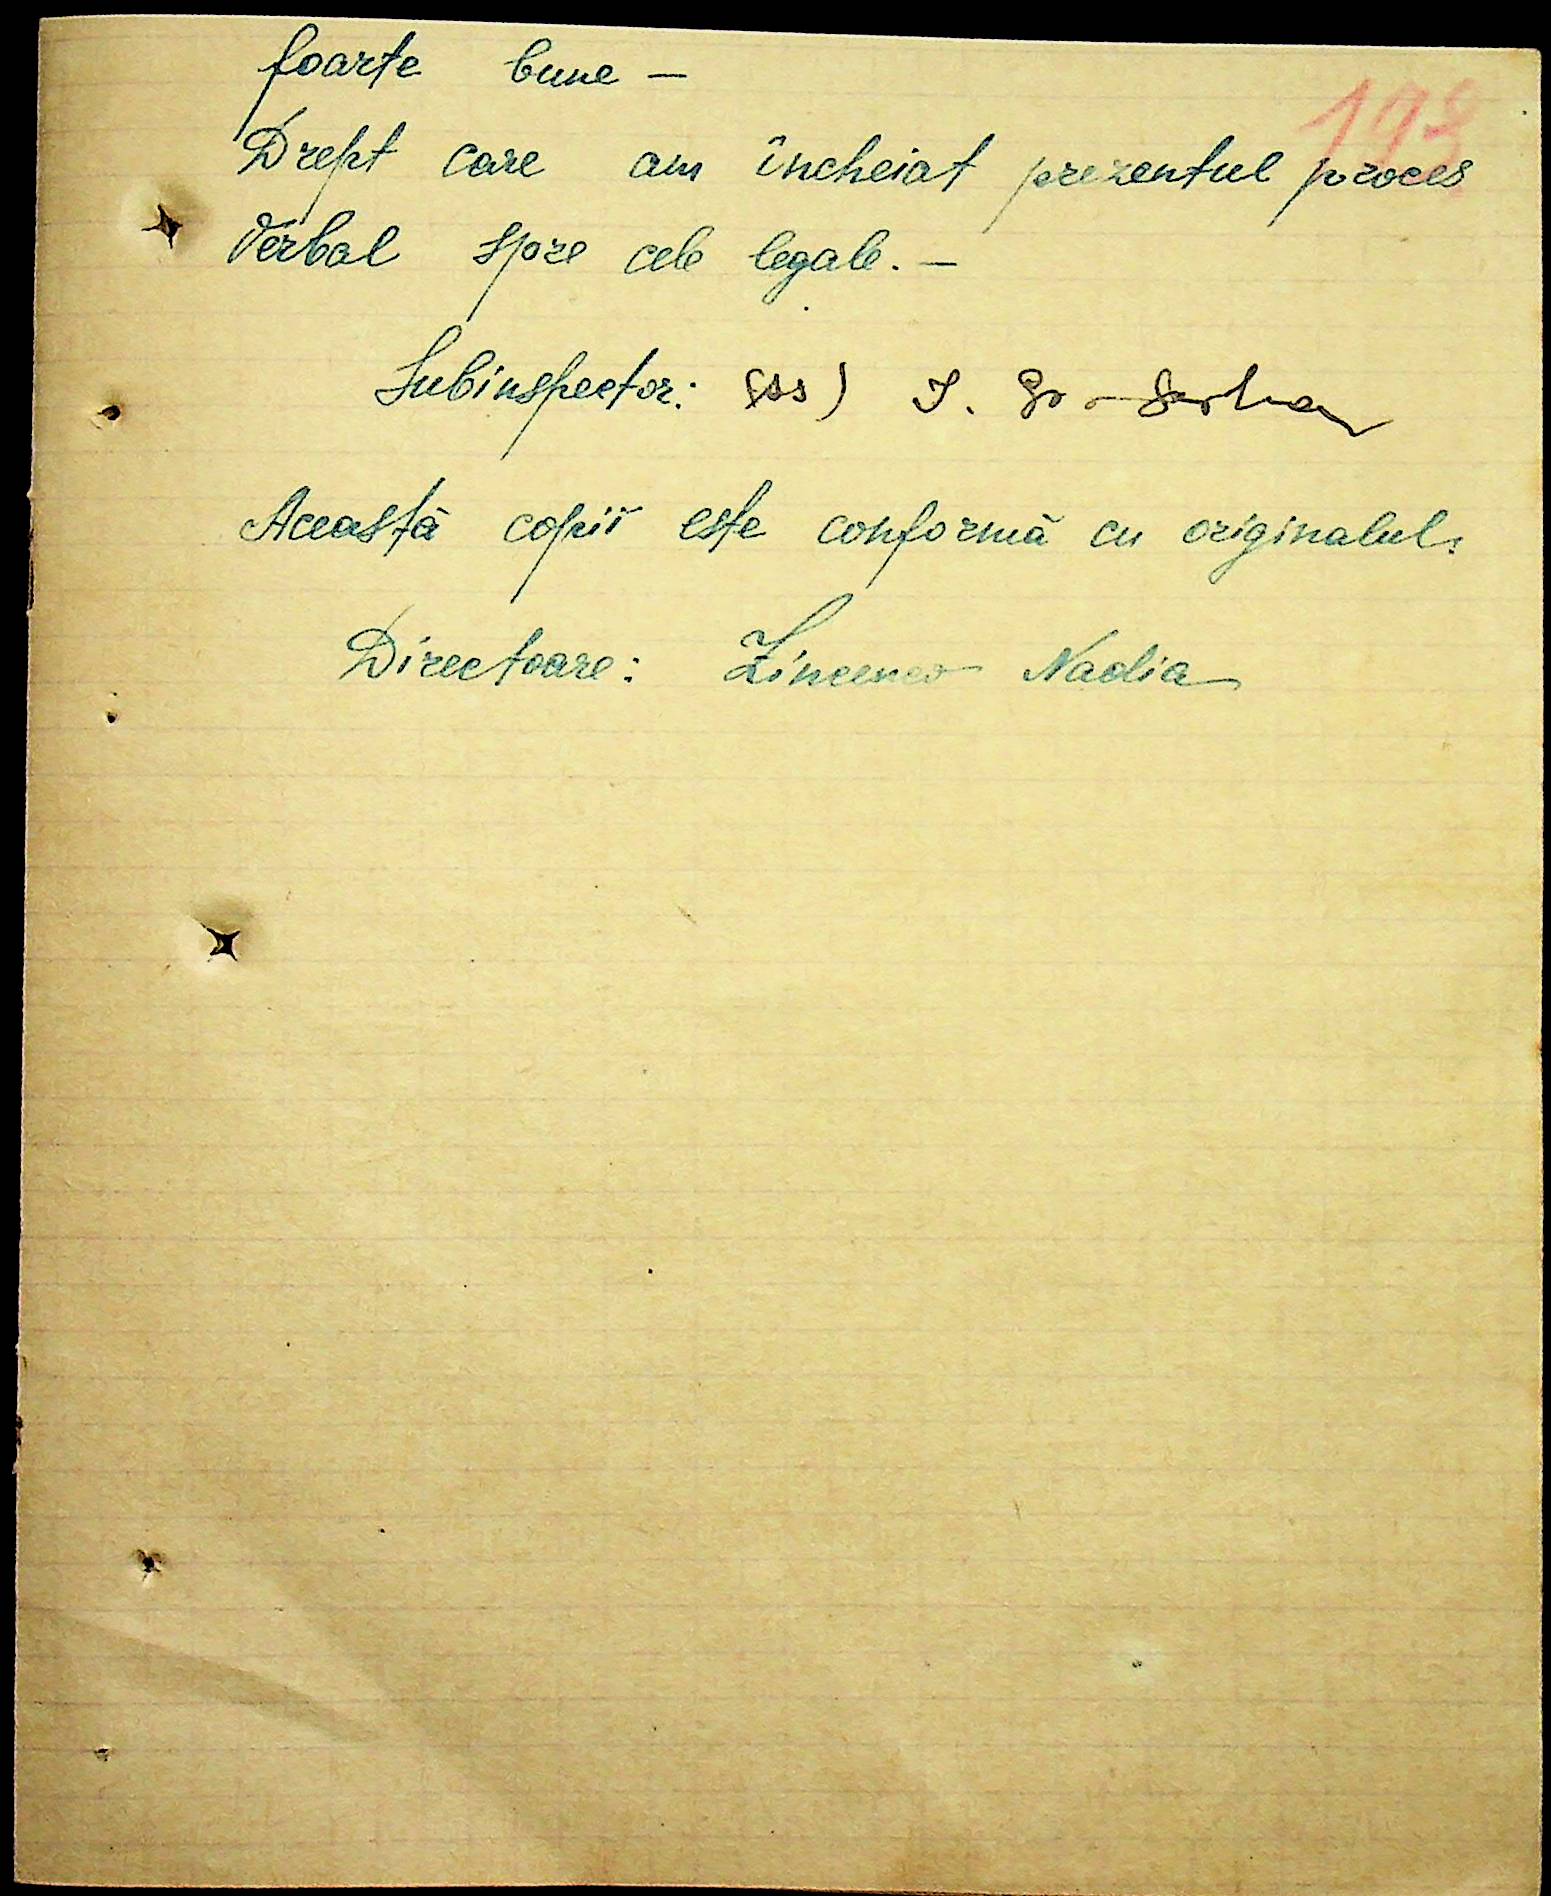 193
foarte bune —
Drept care am încheiat prezentul proces
Verbal spre cele legale. —
Subinspector: (ss) I.
Această copii este conformă cu originalul.
Directoare: Zincenco Nadia